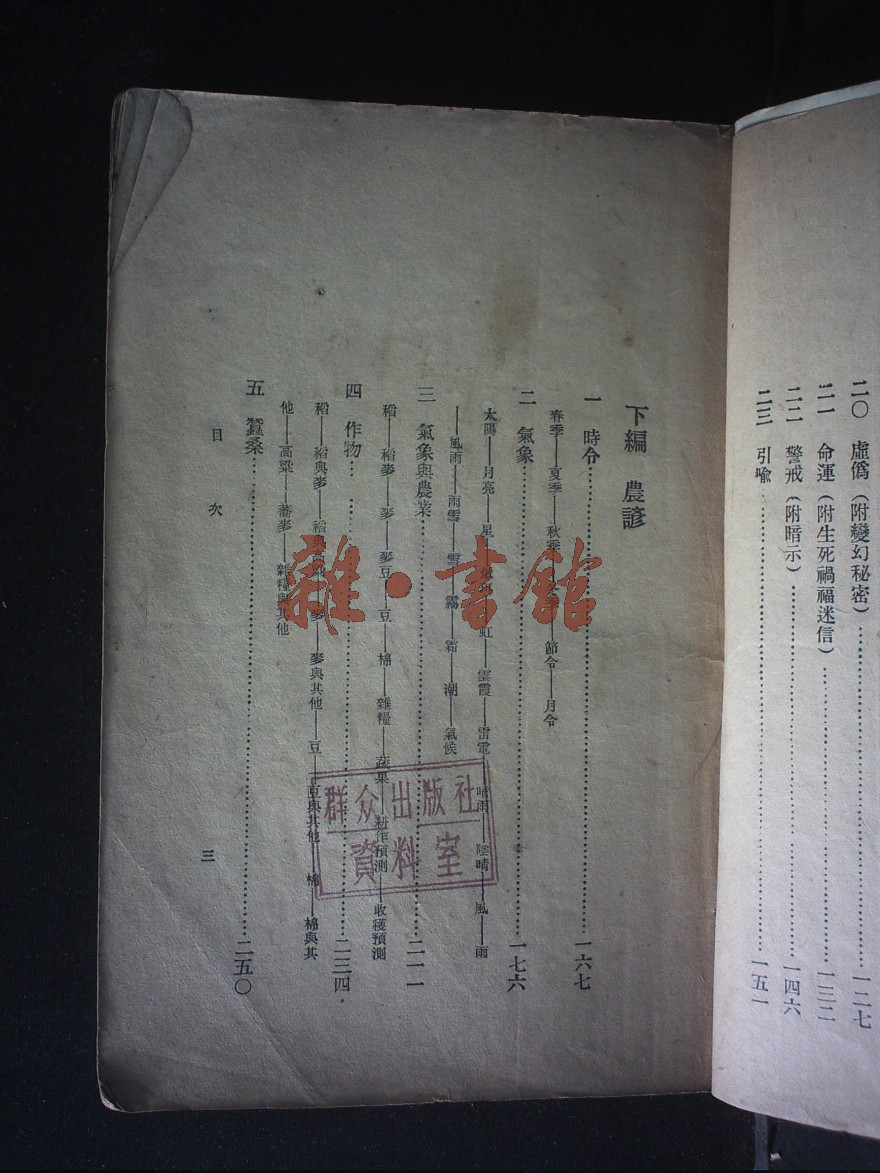 二〇 虛僞(附變幻秘密)…………一二七
二一 命運(附生死禍福迷信)…………一三二
二二 警戒(附暗示)…………一四六
二三 引喩…………一五一
下編 農諺
一 時令…………一六七
春季——夏季——秋季——節令——月令
二 氣象…………一七六
太陽——月亮——星——虹——雲霞——雷電——晴雨——陰晴——風——雨
——風雨——雨雪——雪——霧——霜——潮——氣候
三 氣象與農業…………二一一
稻——稻麥——麥——麥豆——豆——棉——雜糧——蔬果——耕作預測——收穫預測
四 作物…………二三四
稻——稻與麥——麥——麥與其他——豆——豆與其他——棉——棉與其
他——高粱——蕎麥——雜糧與其他
五 蠶桑…………二五〇
目次
三
群众出版社
資料室
雜·書館